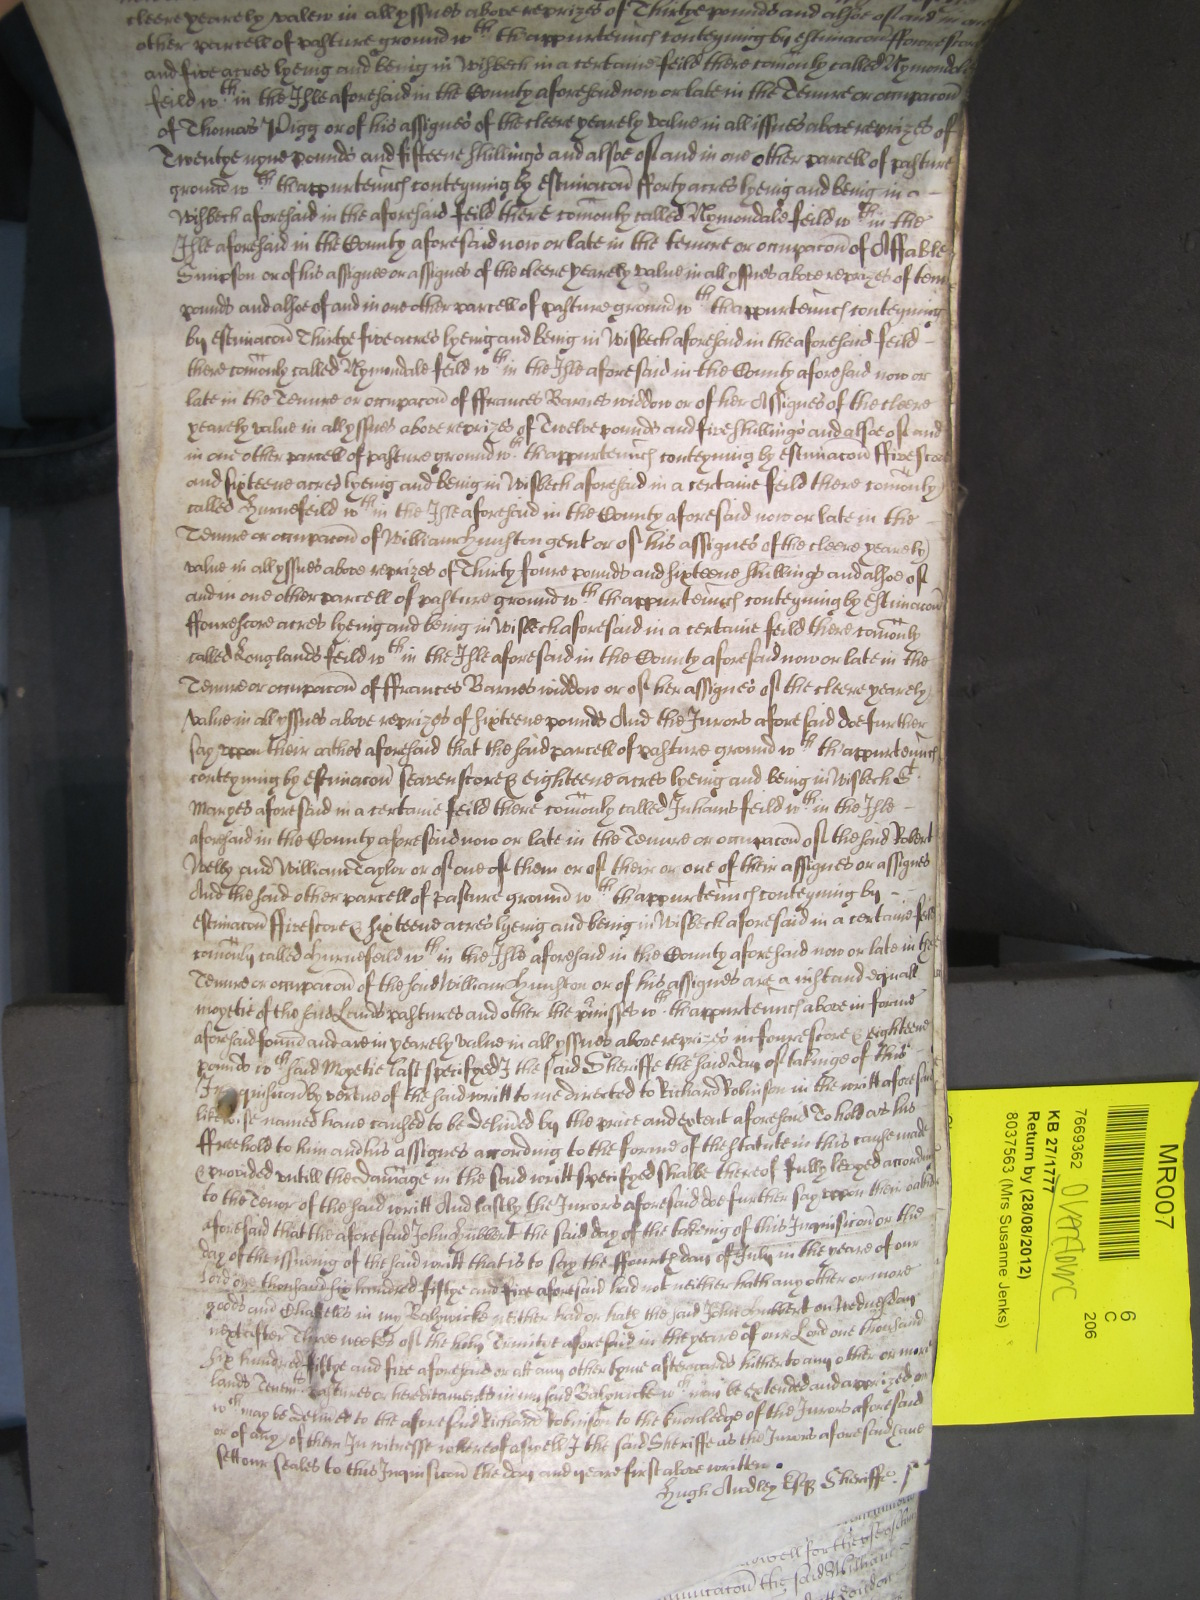 cleere yearely valew in all yssues above reprizes of Thirtye pounds and alsoe of and in one
other parcell of pasture ground wth thappurtenncs conteyning by estimacon ffowerscore
and five acres lyeing and being in Wisbech in a certaine feild there comonly called Rymondale
feild wth in the Isle aforesaid in the County aforesaid now or late in the Tenure or occupacon
of Thomas Pigg or of his assignes of the cleere yearely value in all issues above reprizes of
Twentye nyne pounds and fifteene shillings and alsoe of and in one other parcell of pasture
ground wth thappurtenncs conteyning by estimacon fforty acres lyeing and being in a
Wisbech aforesaid in the aforesaid feild there comonly called Rymondale feild wth in the
Isle aforesaid in the County aforesaid now or late in the tenure or occupacon of Affable
Simpson or of his assignee or assignes of the cleere yearely value in all yssues above reprizes of tenn
pounds and alsoe of and in one other parcell of pasture ground wth thappurtenncs conteyning
by estimacon Thirtye five acres lyeing and being in Wisbech aforesaid in the aforesaid feild
there comonly called Rymondale feild wth in the Isle aforesaid in the County aforesaid now or
late in the Tenure or occupacon of ffrances Barnes widdow or of her Assignes of the cleere
yearely value in all yssues above reprizes of Twelve pounds and five shillings and alsoe of and
in one other parcell of pasture ground wth thappurtenncs conteyning by estimacon ffivescore
and sixteene acres lyeing and being in Wisbech aforesaid in a certaine feild there comonly
called Hurnefeild wth in the Isle aforesaid in the County aforesaid now or late in the
Tenure or occupacon of William gent or of his assignes of the cleere yearely
value in all yssues above reprizes of Thirty foure pounds and sixteene shillings and alsoe of
and in one other parcell of pasture ground wth thappurtenncs conteyning by estimacon
ffourescore acres lyeing and being in Wisbech aforesaid in a certaine feild there comonly
called Longlands feild wth in the Isle aforesaid in the County aforesaid now or late in the
Tenure or occupacon of ffrances Barnes widdow or of her assignes of the cleere yearely
value in all yssues above reprizes of sixteene pounds And the Jurors aforesaid doe further
say uppon their oathes aforesaid that the said parcell of pasture ground wth thappurtenncs
conteyning by estimacon seaven score & eighteene acres lyeing and being in Wisbech St
Maryes aforesaid in a certaine feild there comonly called Inhams feild wth in the Isle
aforesaid in the County aforesaid now or late in the Tenure or occupacon of the said Robert
Welby and William Taylor or of one of them or of their or one of their assignes or assignes
And the said other parcell of pasture ground wth thappurtenncs conteyning by
estimacon ffivescore & sixteene acres lyeing and being in Wisbech aforesaid in a certaine feild
comonly called Hurnefeild wth in the Isle aforesaid in the County aforesaid now or late in the
Tenure or occupacon of the said William or of his assignes are a iust and equall
moyetie of the said Lands pastures and other the pmisses wth thappurtenncs above in forme
aforesaid found and are in yearely value in all yssues above reprizes in fourescore & eighteene
pounds wth said Moyetie last specifyed I the said Sheriffe the said day of takinge of this
Inquisicon by vertue of the said writt to me directed to Richard Robinson in the writt aforesaid
likewise named have caused to be delivred by the price and extent aforesaid To hold as his
ffreehold to him and his assignes according to the forme of the statute in this cause made
& provided untill the damage in the said writt specifyed shalbe thereof fully leyed according
to the Tenor of the said writt And lastly the Jurors aforesaid doe further say uppon their oathes
aforesaid that the aforesaid John Hubbert the said day of the taking of this Inquisicon or the
day of the issueing of the said writt that is to say the ffourth day of July in the yeare of our
Lord one thousand six hundred fiftye and five aforesaid had not neither hath any other or more
goods and Chattells in my Balywicke neither had or hath the said John Hubbert on Wednesday
next after Three weekes of the holy Trinitye aforesaid in the yeare of our Lord one thousand
six hundred fiftye and five aforesaid or att any other tyme afterwards hitherto any other or more
lands Tenemts Pastures or hereditaments in my said Balywicke wch may be extended and apprized or
wch may be delivred to the aforesaid Richard Robinson to the knowledge of the Jurors aforesaid
or of any of them In witnesse whereof aswell I the said Sheriffe as the Jurors aforesaid have
sett our seales to this Inquisicon the day and yeare first above written.
Hugh Audley Esqr Sheriffe.
well for the use of
the said William
London
MR007
6
C
206
7669362
KB 27/1777
Return by (28/08/2012)
8037563 (Mrs Susanne Jenks)